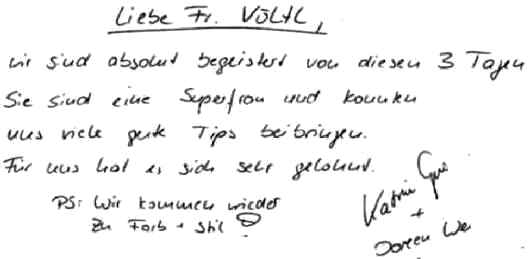 Liebe Fr. Völtl,
wir sind absolut begeistert von diesen 3 Tagen
Sie sind eine Superfrau und konnten
uns viele gute Tips beibringen.
Für uns hat es sich sehr gelohnt.
PS: Wir kommen wieder
zu Farb + Stil
Katrin
+
Doreen